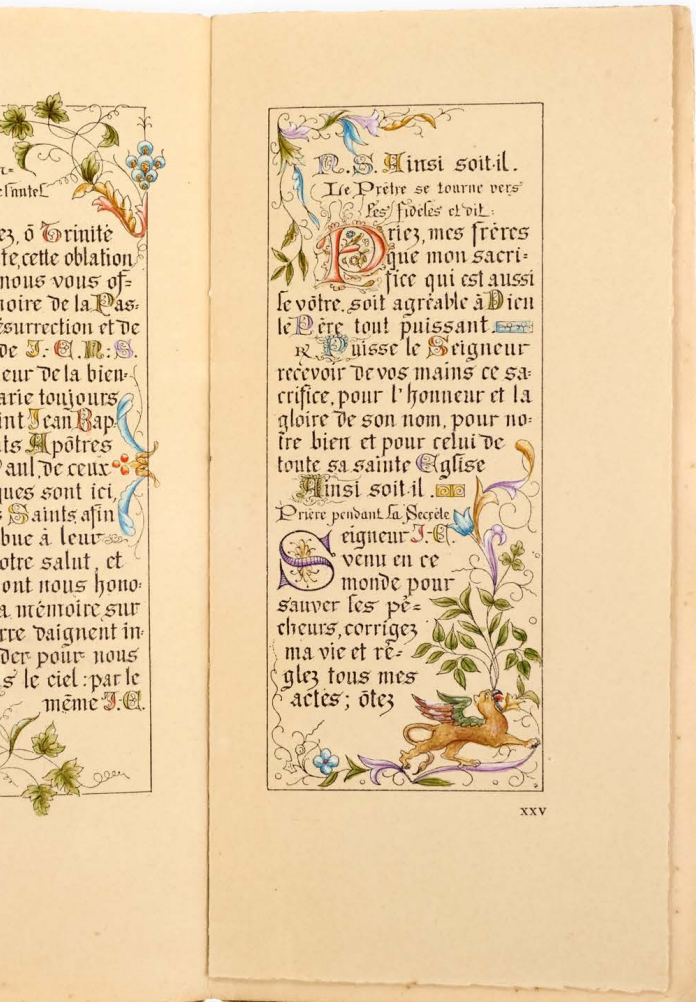 ez, ô Trinité
te, cette oblation
nous vous of=
moire de la Pas=
ésurrection et de
de J.-C. N: S.
eur de la bien-
arie toujours
int Jean Bap
ts Apôtres
Paul, de ceux
ques sont ici,
s Saints, afin
bue à leur
otre salut, et
ont nous hono=
a mémoire sur
rre daignent in=
der pour nous
s le ciel : par le
même J.-C.
N. S. Ainsi soit-il.
Le Prêtre se tourne vers
les fidèles et dit :
Priez, mes frères
que mon sacri-
fice qui est aussi
le vôtre, soit agréable à Dieu
le Père tout puissant
R. Puisse le Seigneur
recevoir de vos mains ce sa-
crifice, pour l'honneur et la
gloire de son nom, pour no-
tre bien et pour celui de
toute sa sainte Eglise
Ainsi soit-il.
Prière pendant la Secrète
Seigneur J.-C.
venu en ce
monde pour
sauver les pé=
cheurs, corrigez
ma vie et ré=
glez tous mes
actes ; ôtez
XXV